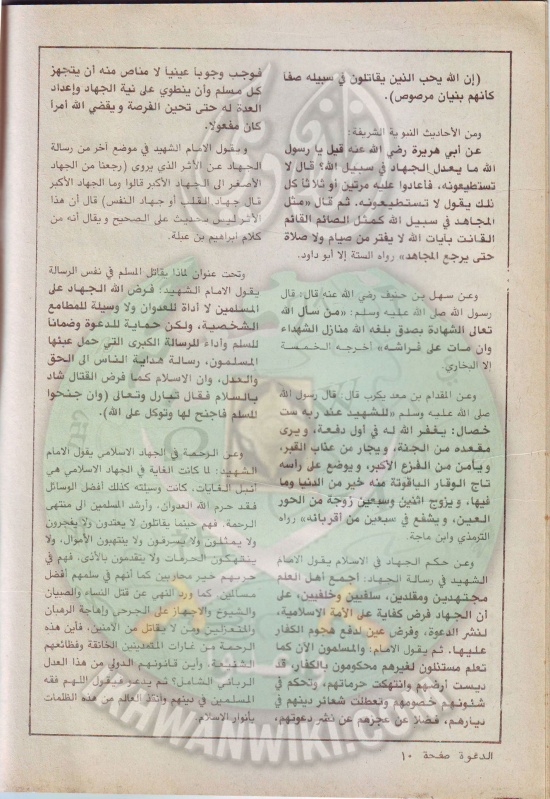 (إن الله يحب الذين يقاتلون في سبيله صفا
كأنهم بنيان مرصوص).
ومن الأحاديث النبوية الشريفة:
عن أبي هريرة رضي الله عنه قيل يا رسول
الله ما يعدل الجهاد في سبيل الله؟ قال لا
تستطيعونه، فأعادوا عليه مرتين أو ثلاثا كل
ذلك يقول لا تستطيعونه، ثم قال «مثل
المجاهد في سبيل الله كمثل الصائم القائم
القانت بآيات الله لا يفتر من صيام ولا صلاة
حتى يرجع المجاهد» رواه الستة إلا أبو داود.
وعن سهل بن حنيف رضي الله عنه قال: قال
رسول الله صلى الله عليه وسلم: «من سأل الله
تعالى الشهادة بصدق بلغه الله منازل الشهداء
وان مات على فراشه» أخرجه الخمسة
إلا البخاري.
وعن المقدام بن معد يكرب قال: قال رسول الله
صلى الله عليه وسلم «للشهيد عند ربه ست
خصال: يغفر الله له في أول دفعة، ويرى
مقعده من الجنة، ويجار من عذاب القبر،
ويأمن من الفزع الأكبر، ويوضع على رأسه
تاج الوقار الياقوتة منه خير من الدنيا وما
فيها، ويزوج اثنتين وسبعين زوجة من الحور
العين، ويشفع في سبعين من أقربائه» رواه
الترمذي وابن ماجة.
وعن حكم الجهاد في الاسلام يقول الامام
الشهيد في رسالة الجهاد: أجمع أهل العلم
مجتهدين ومقلدين، سلفيين وخلفيين، على
أن الجهاد فرض كفاية على الأمة الاسلامية،
لنشر الدعوة، وفرض عين لدفع هجوم الكفار
عليها. ثم يقول الامام: والمسلمون الآن كما
تعلم مستذلون لغيرهم محكومون بالكفار، قد
ديست أرضهم وانتهكت حرماتهم، وتحكم في
شئونهم خصومهم وتعطلت شعائر دينهم في
ديارهم، فضلا عن عجزهم عن نشر دعوتهم،
فوجب وجوبا عينيا لا مناص منه أن يتجهز
كل مسلم وأن ينطوي على نية الجهاد وإعداد
العدة له حتى تحين الفرصة و يقضي الله أمرا
كان مفعولا.
و يقول الامام الشهيد في موضع آخر من رسالة
الجهاد عن الأثر الذي يروى (رجعنا من الجهاد
الأصغر الى الجهاد الأكبر قالوا وما الجهاد الأكبر
قال جهاد القلب أو جهاد النفس) قال أن هذا
الأثر ليس بحديث على الصحيح و يقال أنه من
كلام ابراهيم بن عبلة.
وتحت عنوان لماذا يقاتل المسلم في نفس الرسالة
يقول الامام الشهيد: فرض الله الجهاد على
المسلمين لا أداة للعدوان ولا وسيلة للمطامع
الشخصية، ولكن حماية للدعوة وضمانا
للسلم وأداء للرسالة الكبرى التي حمل عبئها
المسلمون، رسالة هداية الناس الى الحق
والعدل، وان الاسلام كما فرض القتال شاد
بالسلام فقال تبارك وتعالى (وان جنحوا
للسلم فاجنح لها وتوكل على الله).
وعن الرحمة في الجهاد الاسلامي يقول الامام
الشهيد: لما كانت الغاية في الجهاد الاسلامي هي
أنبل الغايات، كانت وسيلته كذلك أفضل الوسائل
فقد حرم الله العدوان، وأرشد المسلمين الى منتهى
الرحمة. فهم حينما يقاتلون لا يعتدون ولا يفجرون
ولا يمثلون ولا يسرفون ولا ينتهبون الأموال، ولا
ينتهكون الحرمات ولا يتقدمون بالأذى، فهم في
حربهم خير محاربين كما أنهم في سلمهم أفضل
مسالمين. كما ورد النهي عن قتل النساء والصبيان
والشيوخ والاجهاز على الجرحى وإهاجة الرهبان
والمنعزلين ومن لا يقاتل من الآمنين، فأين هذه
الرحمة من غارات المتمدينين الخانقة وفظائعهم
الشنيعة، وأين قانونهم الدولي من هذا العدل
الرباني الشامل؟ ثم يدعو فيقول اللهم فقه
المسلمين في دينهم وانقذ العالم من هذه الظلمات
بأنوار الاسلام.
الدعوة صفحة ١٠
IKHWANWIKI.COM